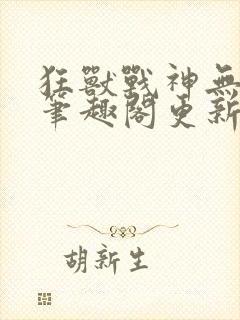 狂獸戰神無
筆趣閣更新
胡新生